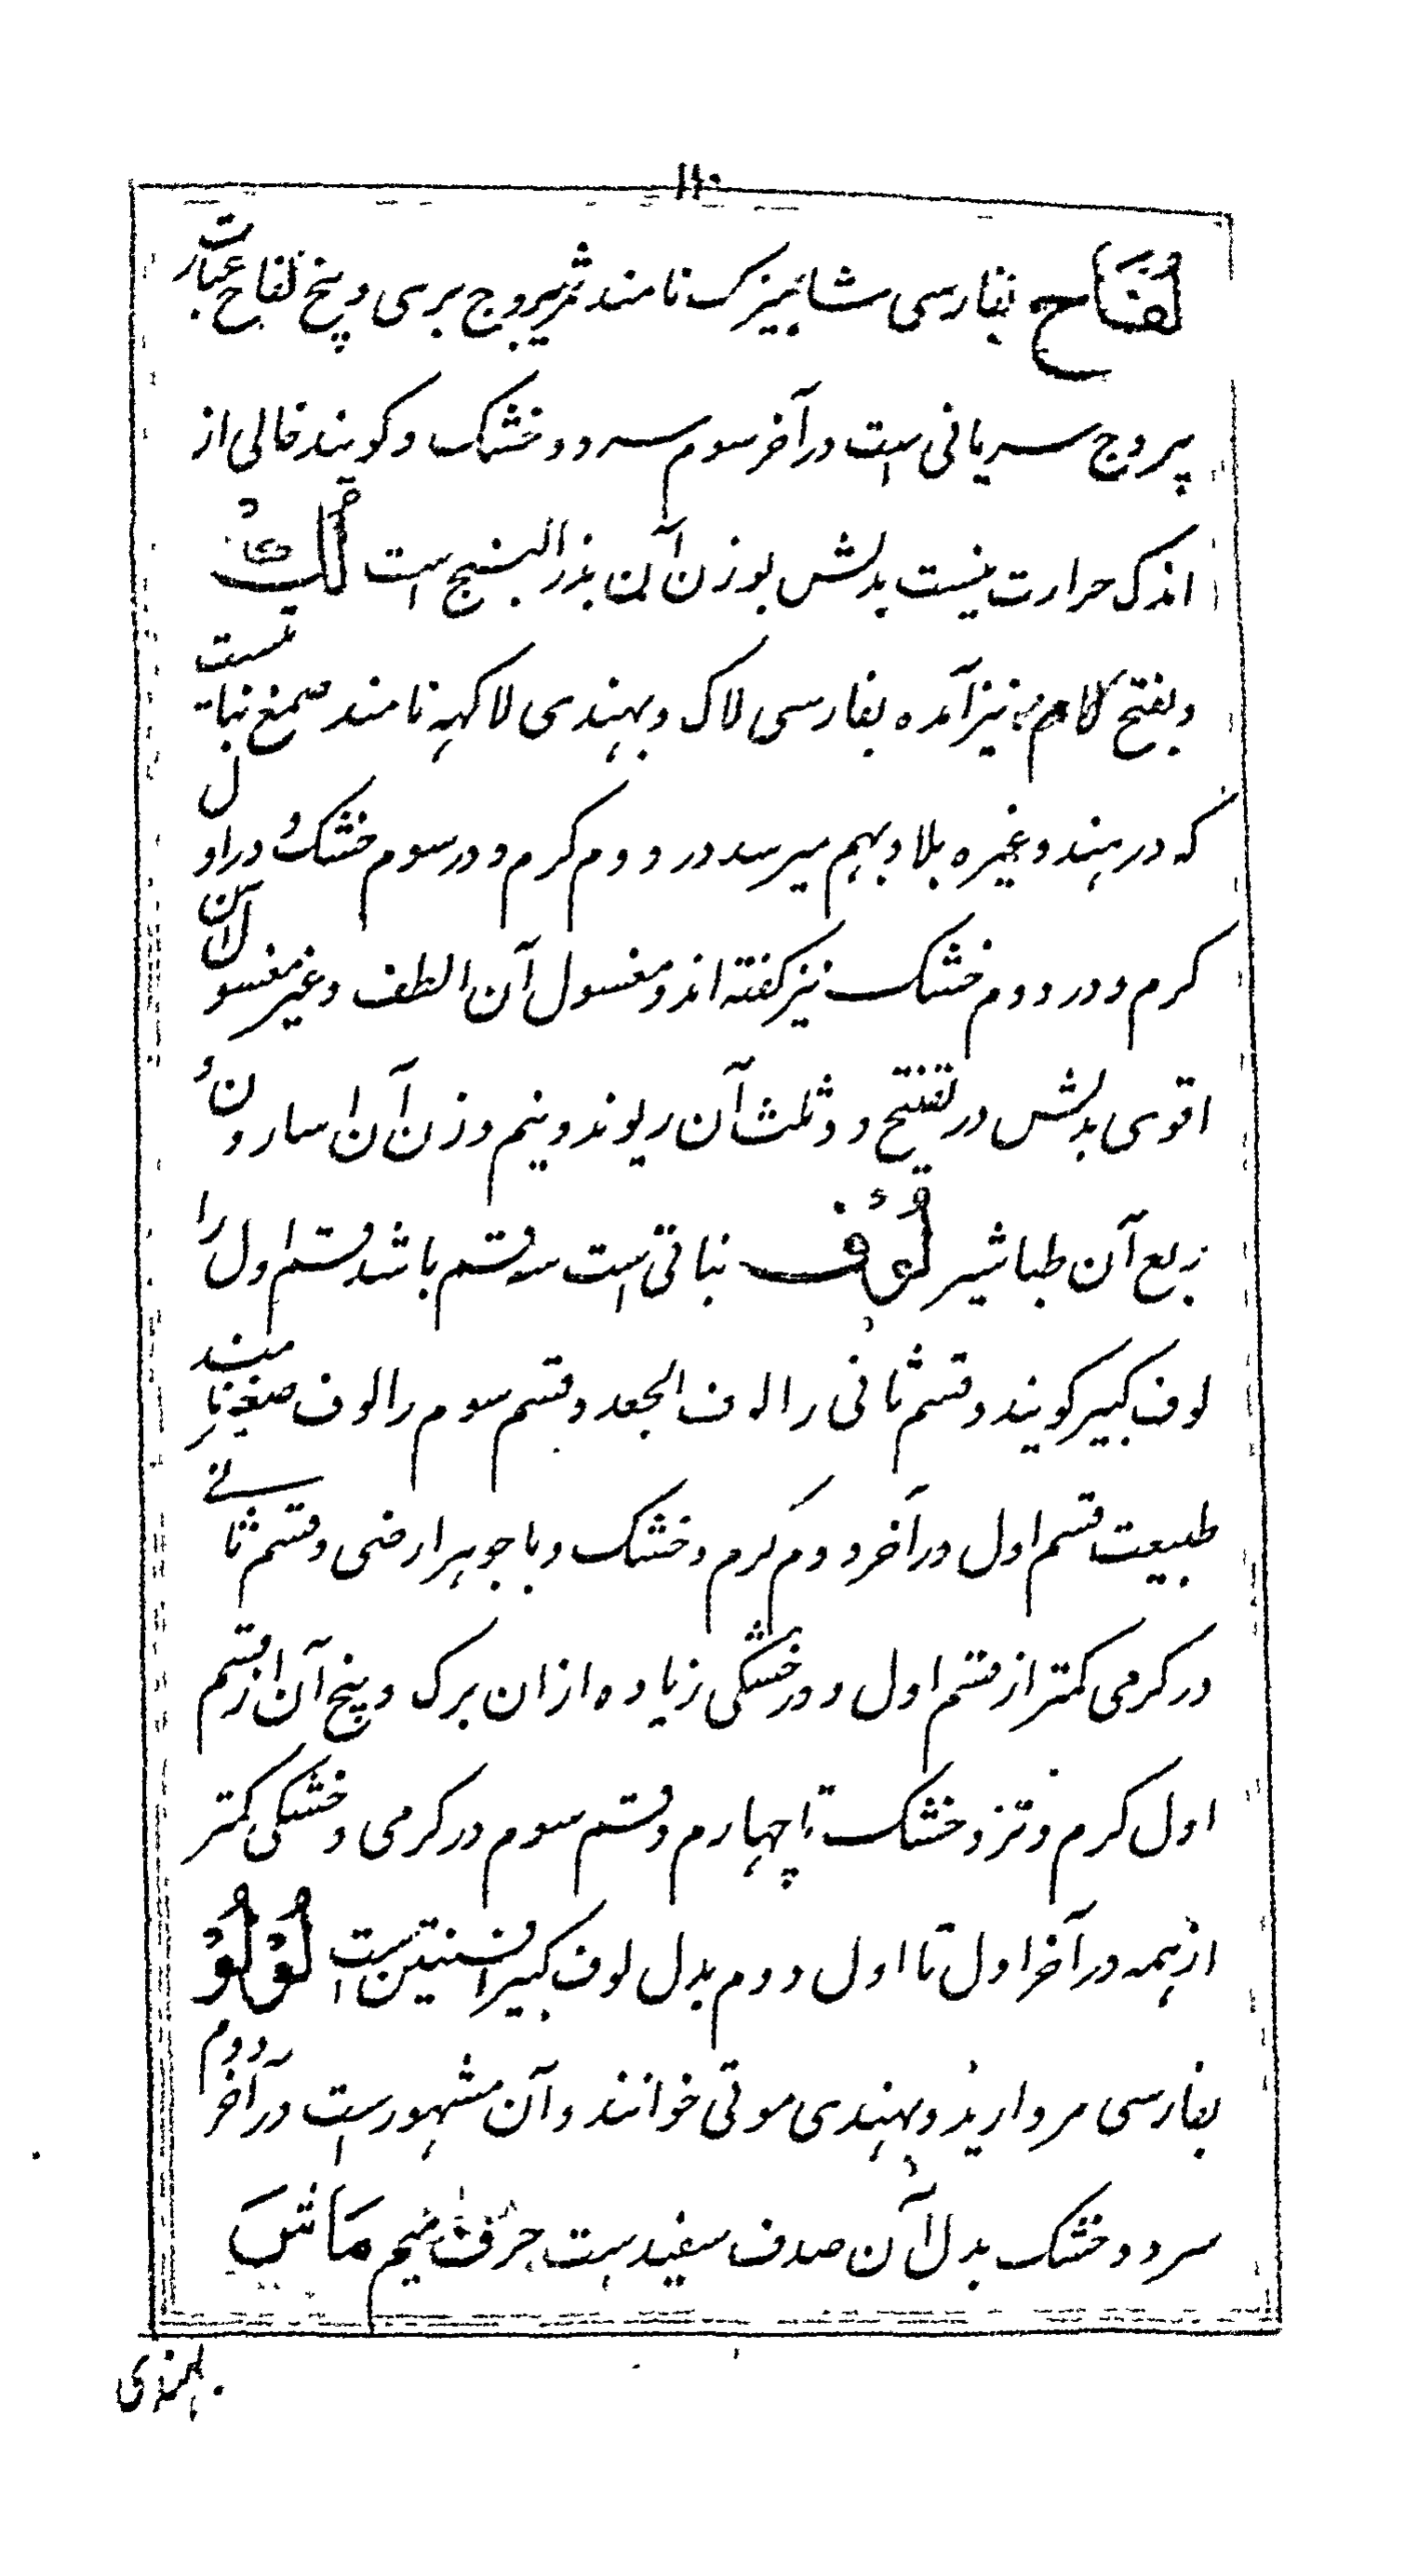 ۱۱۰
لُفَّاح بفارسی شابیزک نامند ثمر یبروج بری و بیخ لفاح عبارت
یبروج سریانی است در آخر سوم سرد و خشک و گویند خالی از
اندک حرارت نیست بدلش بوزن آن بذر البنج است لُکّ
و بفتح لام نیز آمده بفارسی لاک و بهندی لاکهه نامند صمغ نباتیست
که در هند و غیره بلاد بهم میرسد در دوم گرم و در سوم خشک و در اول
گرم و در دوم خشک نیز گفته اند و مغسول آن الطف و غیر مغسول آن
اقوی بدلش در تفتیح دو ثلث آن ریوند و نیم وزن آن اسارون و
ربع آن طباشیر لُوْف نباتی است سه قسم باشد قسم اول را
لوف کبیر گویند و قسم ثانی را لوف الجعد و قسم سوم را لوف صغیر نامند
طبیعت قسم اول در آخر دوم گرم و خشک و با جوهر ارضی و قسم ثانی
در گرمی کمتر از قسم اول و در خشکی زیاده ازان برگ و بیخ آن از قسم
اول گرم و تر و خشک تا چهارم و قسم سوم در گرمی و خشکی کمتر
از همه در آخر اول تا اول دوم بدل لوف کبیر افسنتین است لُؤْلُؤْ
بفارسی مروارید و بهندی موتی خوانند و آن مشهورست در آخر دوم
سرد و خشک بدل آن صدف سفیدست حرف میم مَاش
بهندی